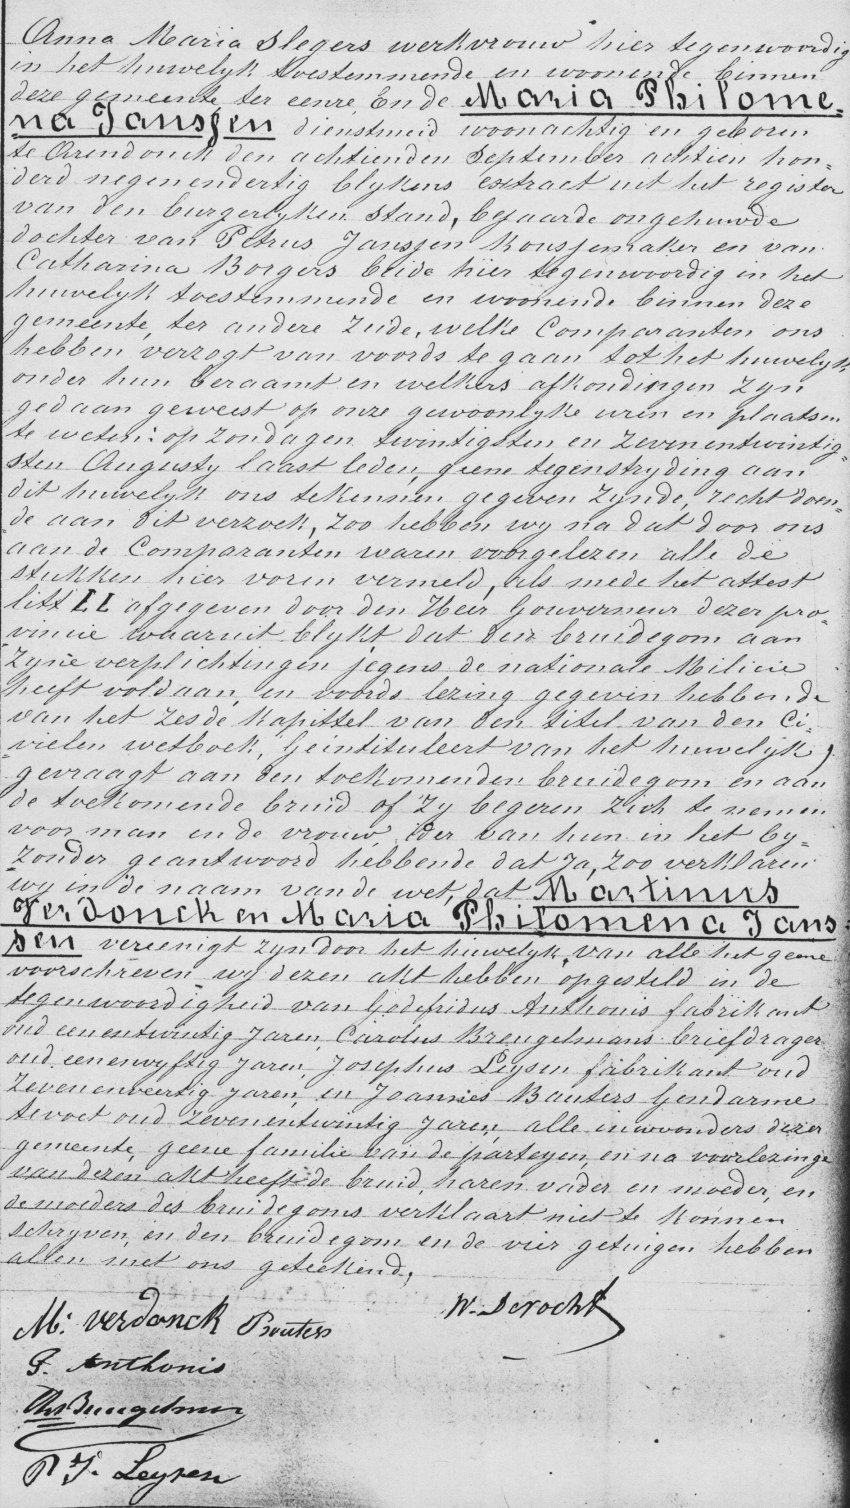 Anna Maria Slegers werkvrouw hier tegenwoordig
in het huwelyk toestemmende en woonende binnen
deze gemeente, ter eenre, Ende Maria Philome-
na Janssen dienstmeid woonachtig en geboren
te Arendonck den achtienden September achtien hon-
derd negenendertig blykens extract uit het register
van den burgerlyken stand, bejaarde ongehuwde
dochter van Petrus Janssen kousjemaker en van
Catharina Borgers beide hier tegenwoordig in het
huwelyk toestemmende en woonende binnen deze
gemeente, ter andere zeide, welke Comparanten ons
hebben verzogt van voords te gaan tot het huwelyk
onder hun beraamt en welkers afkondingen zyn
gedaan geweest op onze gewoonlyke uren en plaatsen
te weten: op zondagen twintigsten en zevenentwintig-
sten Augusty laast leden, geene tegenstryding aan
dit huwelyk ons te kennen gegeven zynde, recht doen-
de aan dit verzoek, zoo hebben wy na dat door ons
aan de Comparanten waren voorgelezen alle de
stukken hier voren vermeld, als mede het attest
litt LL afgegeven door den Heer Gouverneur dezer pro-
vincie waaruit blykt dat den bruidegom aan
zyne verplichtingen jegens de nationale Milicie
heeft voldaan, en voords lezing gegeven hebbende
van het zesde kapittel van den titel van den Ci-
vielen wetboek, (geintituleert van het huwelyk)
gevraagt aan den toekomenden bruidegom en aan
de toekomende bruid of zy begeren zich te nemen
voor man en de vrouw, ider van hun in het by-
zonder geantwoord hebbende dat Ja, zoo verklaren
wy in de naam van de wet, dat Martinus
Verdonck en Maria Philomena Jans-
sen vereenigt zyn door het huwelyk, van alle het geene
voorschreven wy dezen akt hebben opgesteld in de
tegenwoordigheid van Godefridus Anthonis fabrikant
oud eenentwintig Jaren, Carolus Brengelmans briefdrager
oud eenenvyftig Jaren, Josephus Leysen fabrikant oud
zevenenveertig Jaren, en Joannes Bauters Gendarme
te voet oud zevenentwintig Jaren, alle inwoonders dezer
gemeente, geene familie van de parteyen, en na voorlezinge
van dezen akt heeft de bruid, haren vader en moeder, en
de moeders des bruidegoms verklaart niet te konnen
schryven, en den bruidegom en de vier getuigen hebben
allen met ons geteekend,
M: Verdonck Bauters W. Derocht
G. Anthonis
Brengelman
P J. Leysen